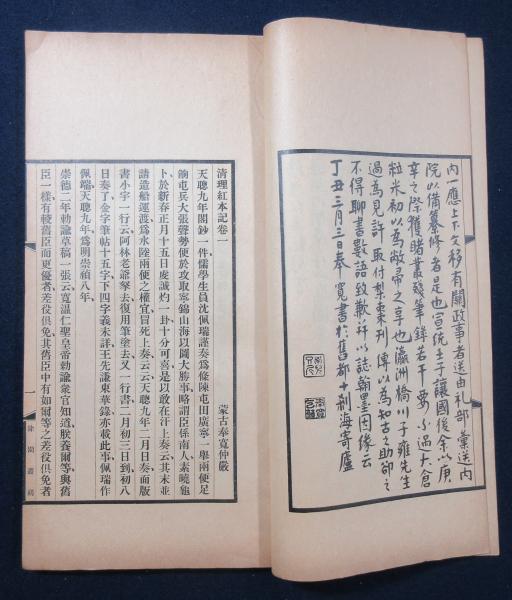 內一應上下文移有關政事者送由礼部彙送內
院以備纂修者是也宣統壬子讓國後余以庚
辛之際獲睹叢殘筆錄若干要亦過大倉
粒米初以為敝帚之享也瀛洲橋川子雍先生
過為見許取付梨棗刊傳以為知古之助卻之
不得聊書數語致歉幷以誌翰墨因緣云
丁丑三月三日奉寬書於舊都十剎海寄廬
清理紅本記卷一
蒙古奉寬仲嚴
天聰九年閣鈔一件儒學生員沈佩瑞謹奏為條陳屯田廣寧一舉兩便足
餉屯兵大張聲勢便於攻取寧錦山海以圖大勝事略謂臣係南人素曉龜
卜於新春正月十五日虔誠灼一卦十分可喜是以敢在汗上奏云其末並
請造船運渡為水陸兩便之權宜冒死上奏云云天聰九年二月日奏面版
書小字一行云阿林老爺拏去復用筆塗去又一行書二月初三日到初八
日奏了金字筆帖十五字下四字義未詳王先謙東華錄亦載此事佩瑞作
佩端天聰九年為明崇禎八年
崇德二年勅諭草稿一張云寬溫仁聖皇帝勅諭衆官知道朕養爾等與舊
臣一樣有較舊臣而更優者差役俱免其舊臣中有如爾等之差役俱免者
一